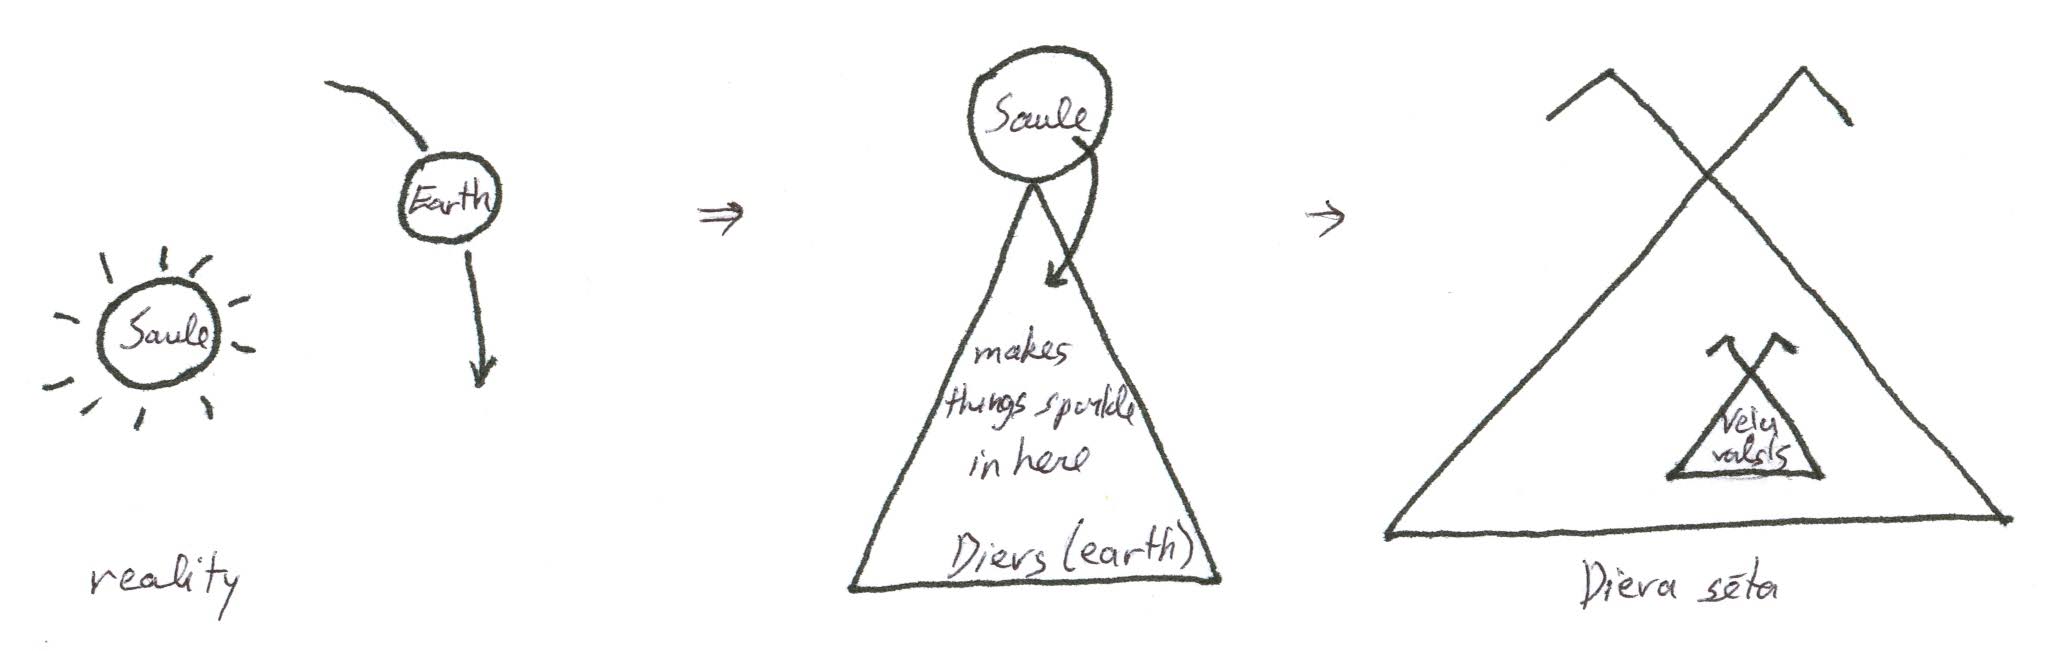 Earth
Saule
reality
Saule
makes
things sparkle
in here
Dievs (earth)
Veļu
valsts
Dieva sēta